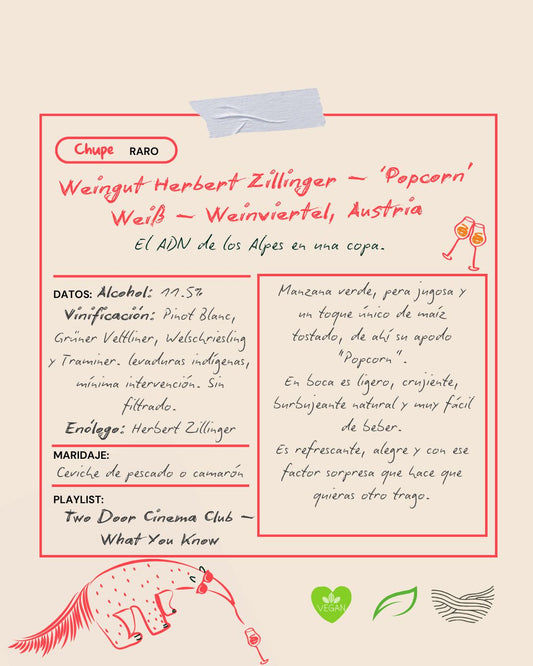 Chupe RARO
Weingut Herbert Zillinger – 'Popcorn'
Weiß – Weinviertel, Austria
El ADN de los Alpes en una copa.
DATOS: Alcohol: 11.5%
Vinificación: Pinot Blanc,
Grüner Veltliner, Welschriesling
y Traminer. levaduras indígenas,
mínima intervención. Sin
filtrado.
Enólogo: Herbert Zillinger
MARIDAJE:
Ceviche de pescado o camarón
PLAYLIST:
Two Door Cinema Club –
What You Know
Manzana verde, pera jugosa y
un toque único de maíz
tostado, de ahí su apodo
"Popcorn".
En boca es ligero, crujiente,
burbujeante natural y muy fácil
de beber.
Es refrescante, alegre y con ese
factor sorpresa que hace que
quieras otro trago.
VEGAN